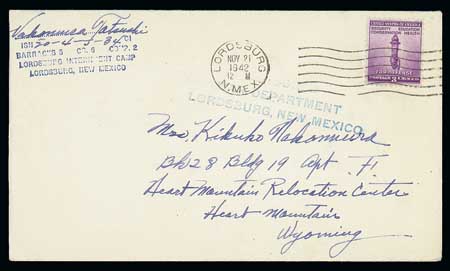 Nakamura Tatsushi
ISN 20-4-J-34 CI
BARRACKS 5 CO. 6 COMP. 2
LORDSBURG INTERNMENT CAMP
LORDSBURG, NEW MEXICO
LORDSBURG
NOV 21
1942
12 M
N.MEX.
UNITED STATES OF AMERICA
SECURITY EDUCATION
CONSERVATION HEALTH
FOR DEFENSE
3
DEPARTMENT
LORDSBURG, NEW MEXICO
Mrs. Kikuko Nakamura
Bk 28 Bldg 19 Apt F.
Heart Mountain Relocation Center
Heart Mountain
Wyoming